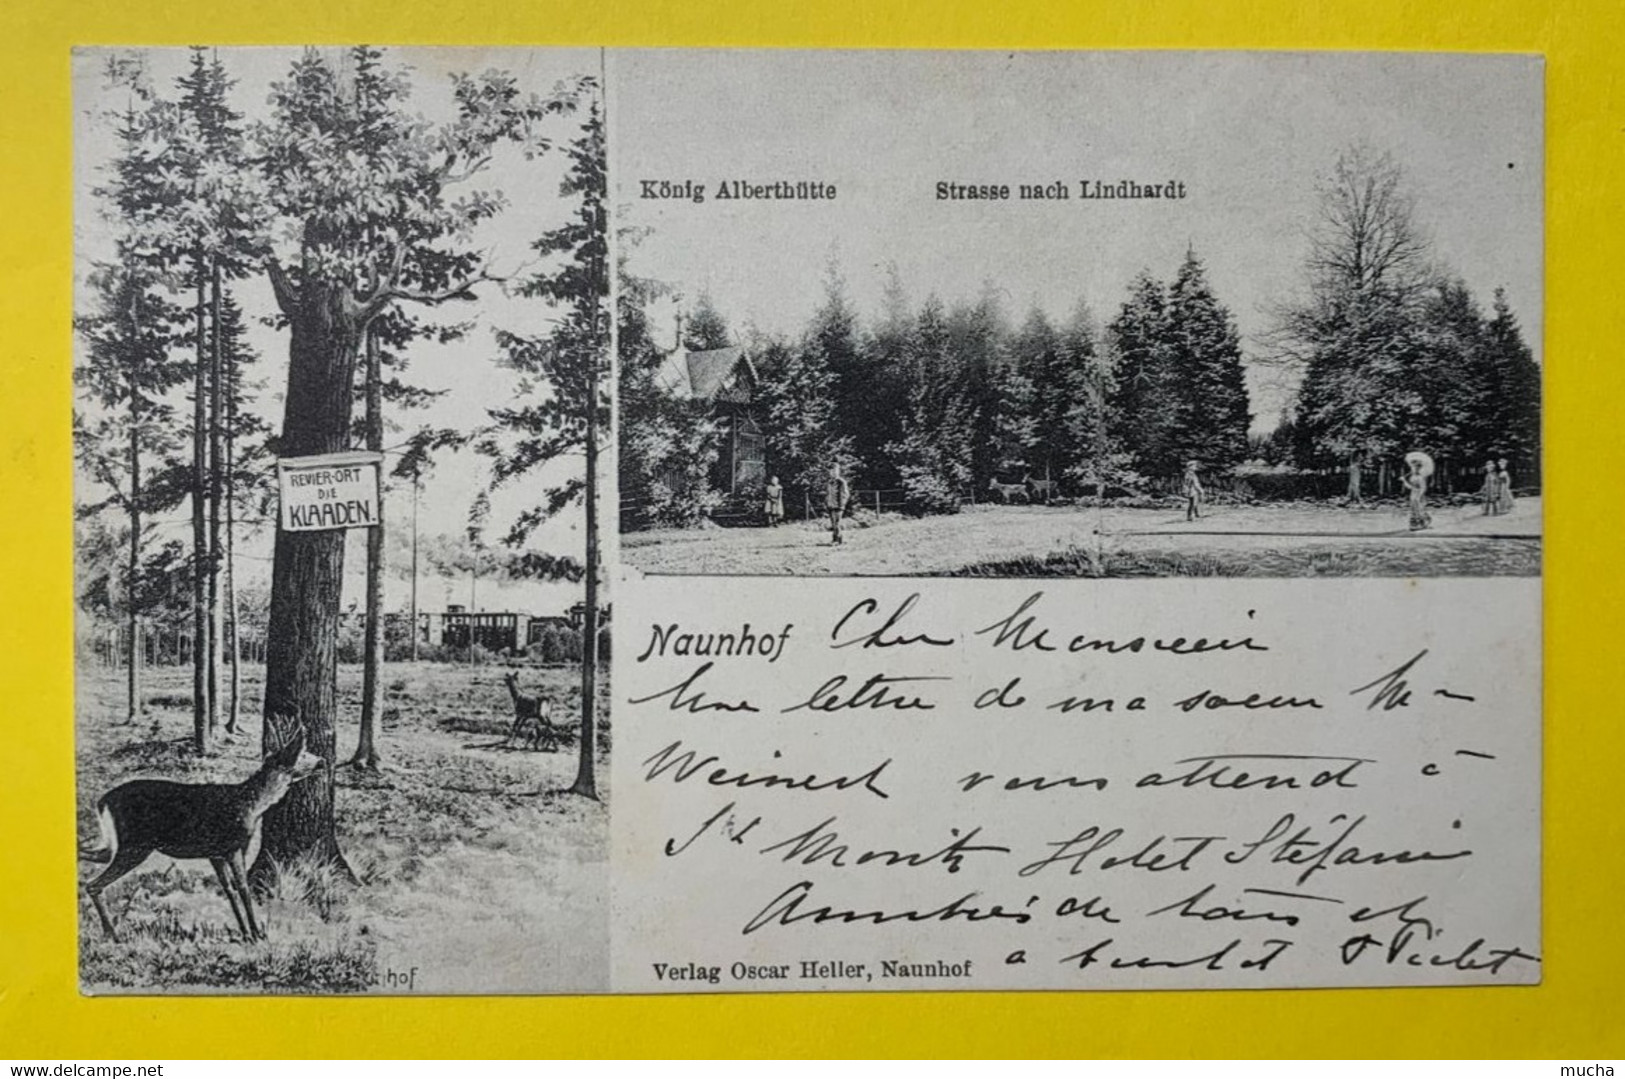 König Alberthütte
Strasse nach Lindhardt
REVIER-ORT
DIE
KLAADEN.
Naunhof
Cher Monsieur
Une lettre de ma soeur M
Weinert vous attend à
St Moritz Hotel Stéfanie
de tous et
a bientot
Verlag Oscar Heller, Naunhof
hof
mucha
delcampe.net